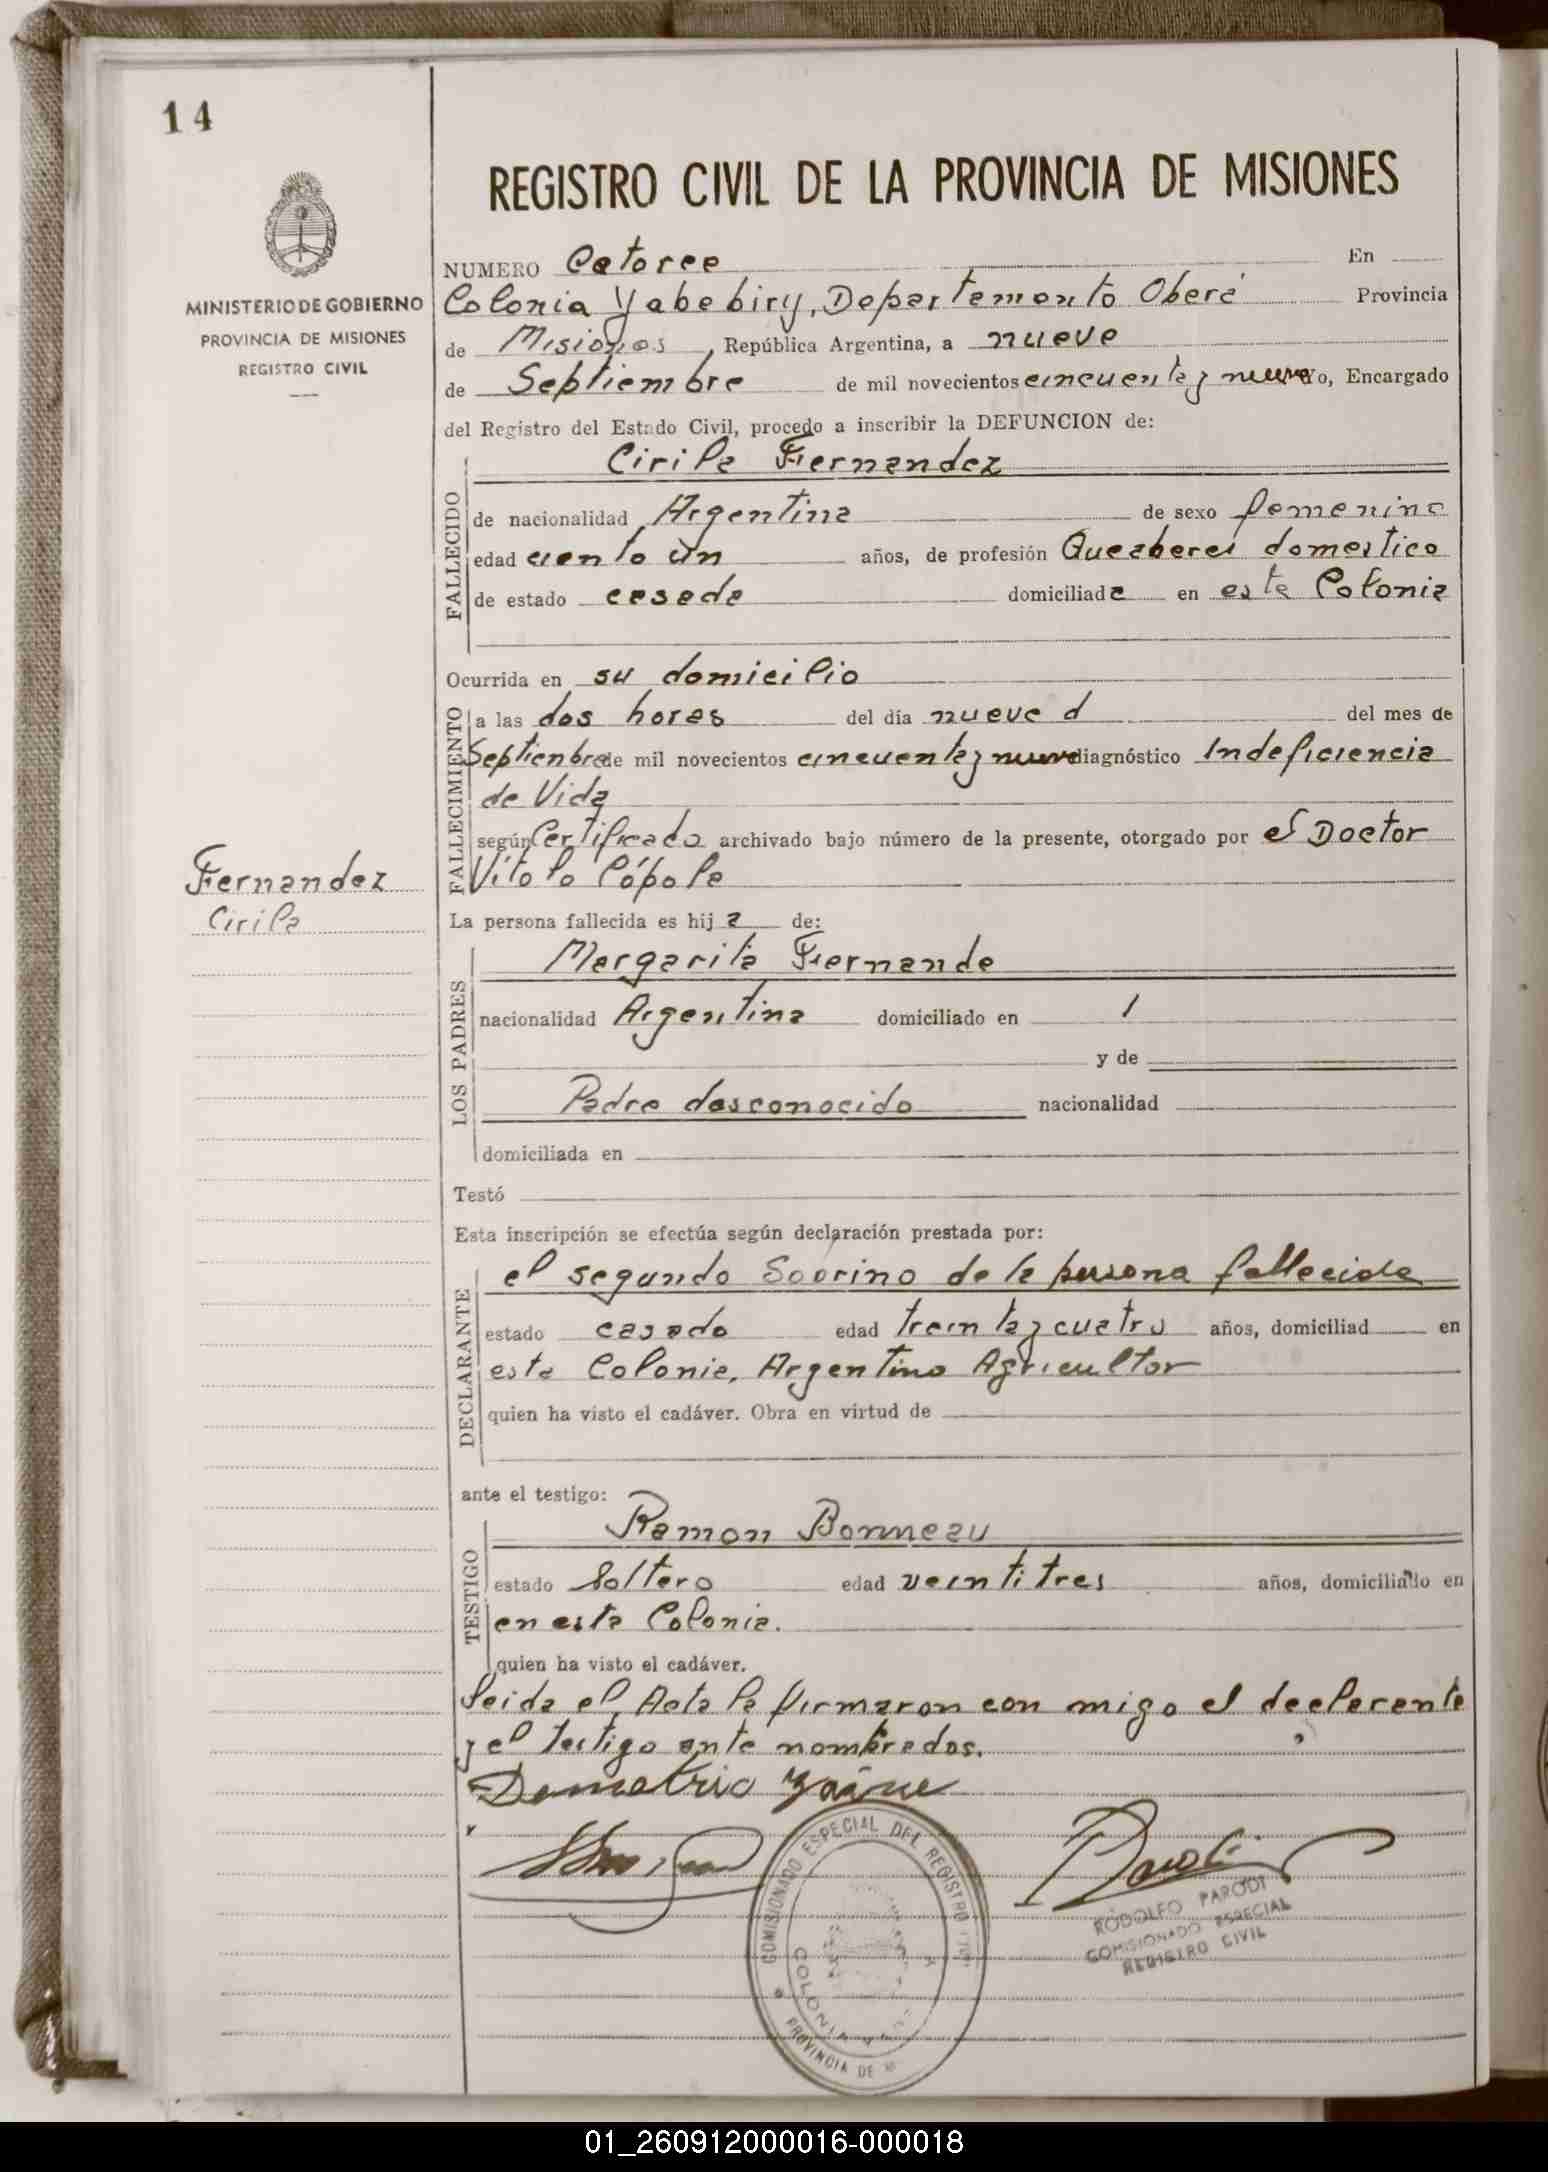 14
REGISTRO CIVIL DE LA PROVINCIA DE MISIONES
MINISTERIO DE GOBIERNO
PROVINCIA DE MISIONES
REGISTRO CIVIL
NUMERO Catorce En
Colonia Yabebiry, Departamento Oberá Provincia
de Misiones, República Argentina, a nueve
de Septiembre de mil novecientos cincuenta y nueve Yo, Encargado
del Registro del Estado Civil, procedo a inscribir la DEFUNCION de:
Cirila Fernandez
FALLECIDO
de nacionalidad Argentina de sexo femenino
edad ciento un años, de profesión Queaberes domestico
de estado casada domiciliada en esta Colonia
Ocurrida en su domicilio
FALLECIMIENTO
a las dos horas del día nueve d del mes de
Septienbre de mil novecientos cincuenta y nueve diagnóstico Indeficiencia
de Vida
según Certificado archivado bajo número de la presente, otorgado por el Doctor
Vitolo Cópola
Fernandez
Cirila
La persona fallecida es hija de:
LOS PADRES
Margarita Fernande
nacionalidad Argentina domiciliado en /
y de
Padre desconocido nacionalidad
domiciliada en
Testó
Esta inscripción se efectúa según declaración prestada por:
DECLARANTE
el segundo Soorino de la persona fallecida
estado casado edad treinta y cuatro años, domiciliad en
esta Colonia, Argentino Agricultor
quien ha visto el cadáver. Obra en virtud de
ante el testigo:
TESTIGO
Ramon Bonneau
estado Soltero edad veintitres años, domiciliado en
en esta Colonia.
quien ha visto el cadáver.
Leida el Acta la firmaron con migo el declarente
y el testigo ante nombrados.
Demetrio
COMISIONADO ESPECIAL DEL REGISTRO CIVIL
COLONIA
PROVINCIA DE
RODOLFO PARODI
COMISIONADO ESPECIAL
REGISTRO CIVIL
01_260912000016-000018